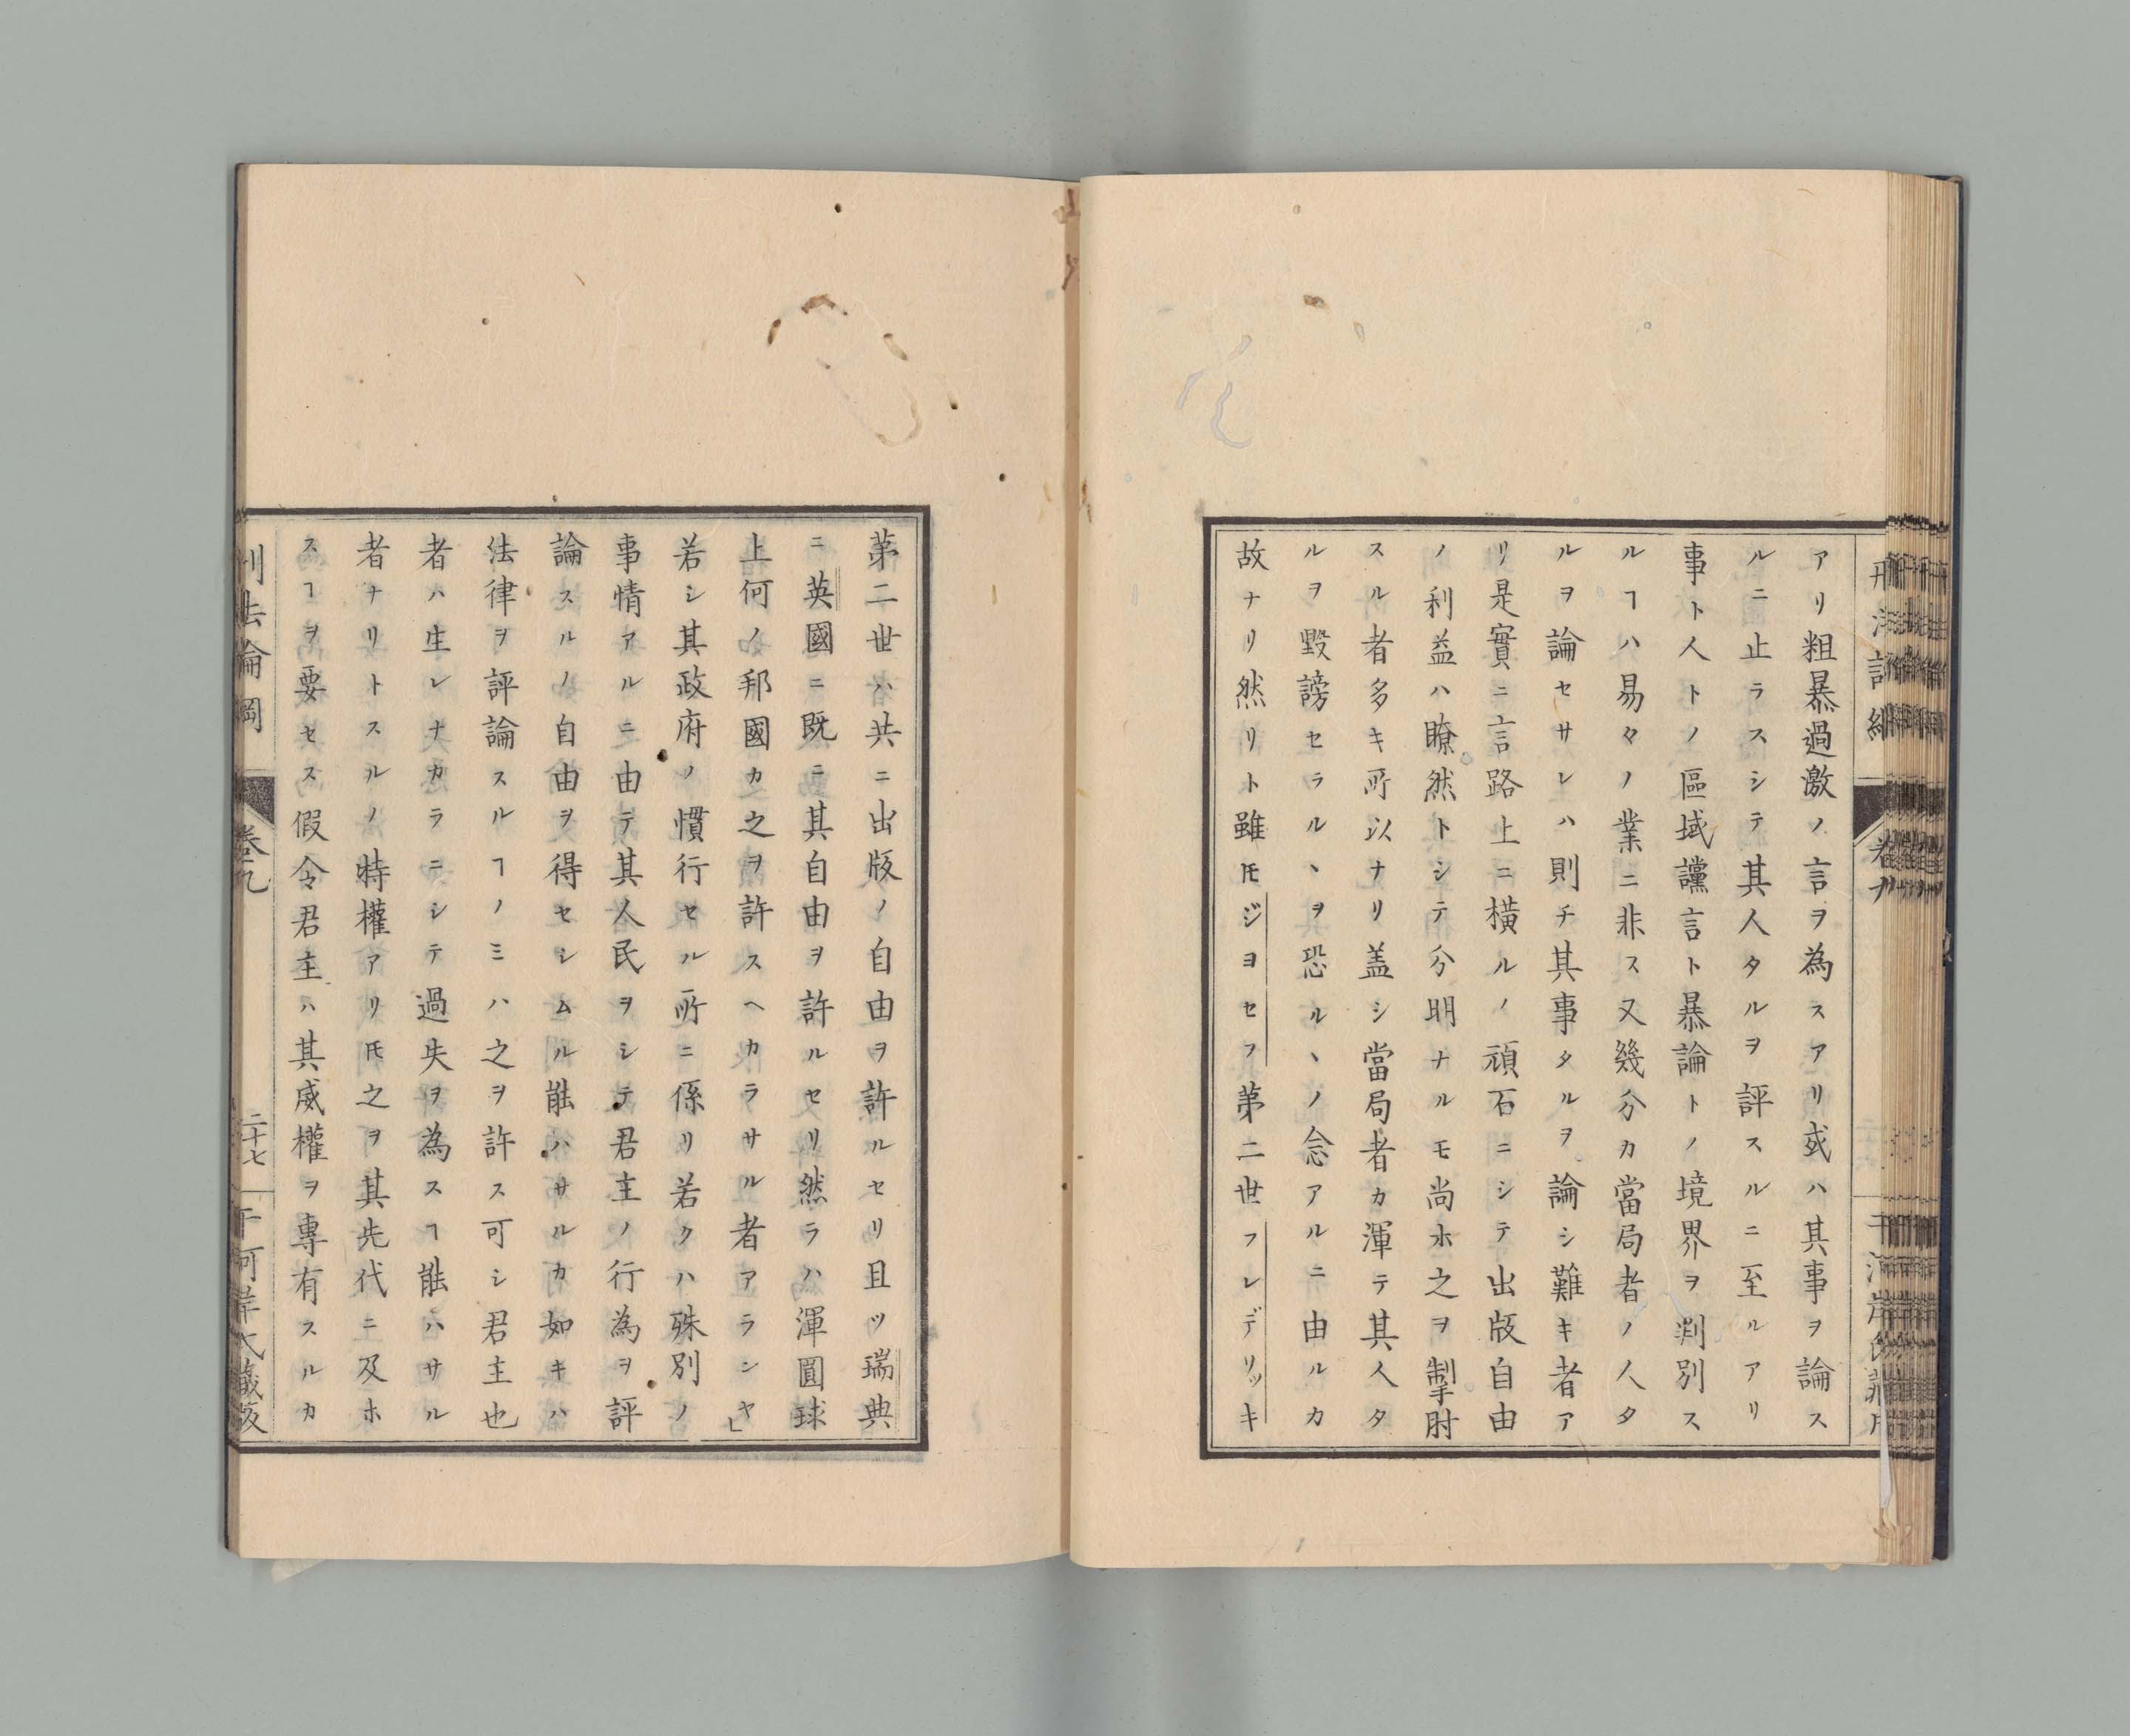 アリ粗暴過激ノ言ヲ為スアリ或ハ其事ヲ論ス
ルニ止ラスシテ其人タルヲ評スルニ至ルアリ
事ト人トノ區域讜言ト暴論トノ境界ヲ判別ス
ルヿハ易々ノ業ニ非ス又幾分カ當局者ノ人タ
ルヲ論セサレハ則チ其事タルヲ論シ難キ者ア
リ是實ニ言路上ニ横ルノ頑石ニシテ出版自由
ノ利益ハ瞭然トシテ分明ナルモ尚ホ之ヲ掣肘
スル者多キ所以ナリ盖シ當局者カ渾テ其人タ
ルヲ毀謗セラルヽヲ恐ルヽノ念アルニ由ルカ
故ナリ然リト雖𪜈ジヨセフ第二世フレデリッキ
第二世ハ共ニ出版ノ自由ヲ許ルセリ且ツ瑞典
ニ英國ニ既ニ其自由ヲ許ルセリ然ラハ渾圓球
上何ノ邦國カ之ヲ許スヘカラサル者アランヤ」
若シ其政府ノ慣行セル所ニ係リ若クハ殊別ノ
事情アルニ由テ其人民ヲシテ君主ノ行為ヲ評
論スルノ自由ヲ得セシムル能ハサルカ如キハ
法律ヲ評論スルヿノミハ之ヲ許ス可シ君主也
者ハ生レナカラニシテ過失ヲ為スヿ能ハサル
者ナリトスルノ特權アリ𪜈之ヲ其先代ニ及ホ
スヿヲ要セス假令君主ハ其威權ヲ專有スルカ
刑法論綱
卷九
二十七
干河岸氏藏版